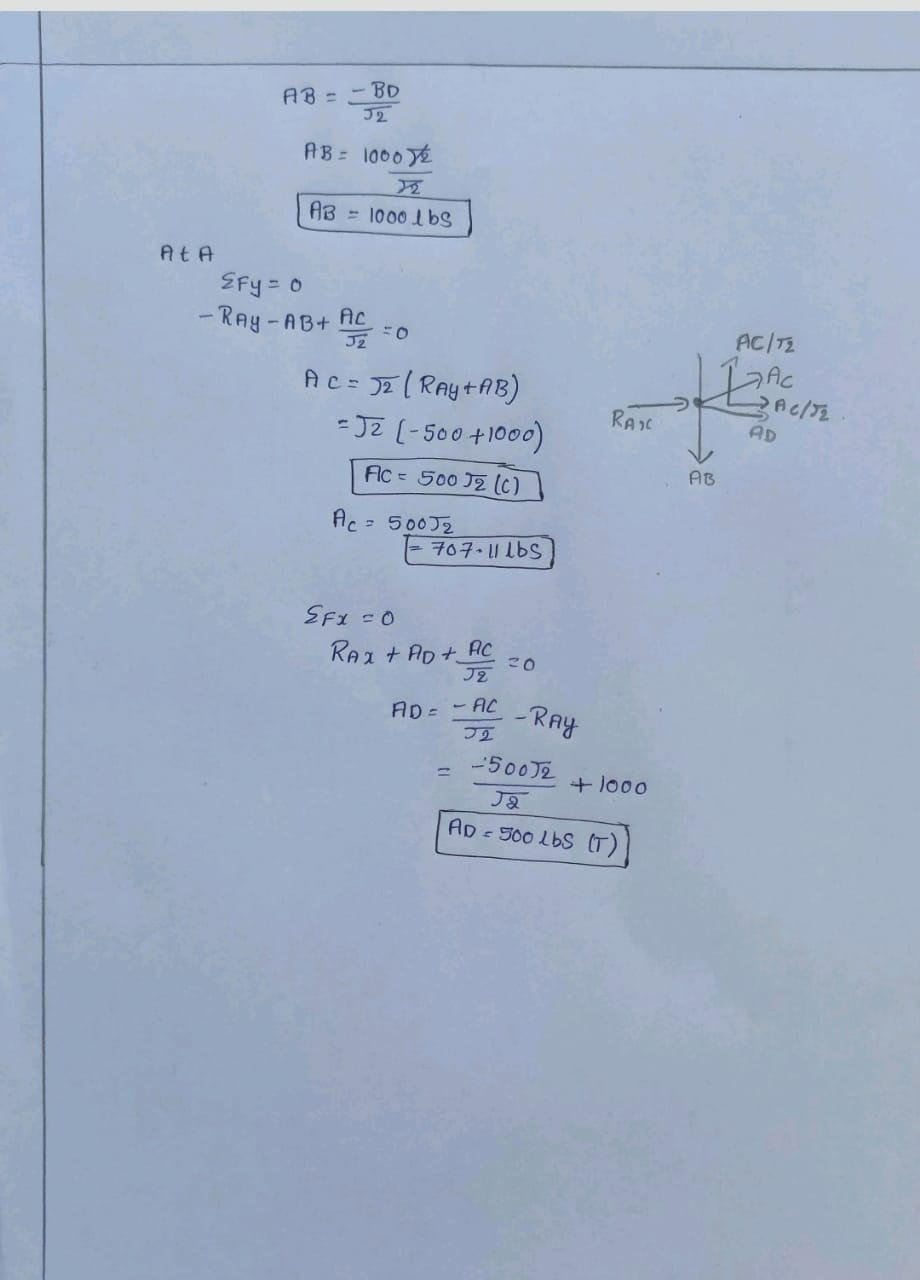 AB = -BD/√2
AB = 1000√2/√2
AB = 1000 lbs
At A
ΣFy = 0
-RAy - AB + AC/√2 = 0
AC = √2 (RAy + AB)
= √2 (-500 + 1000)
AC = 500√2 (C)
AC = 500√2
= 707.11 lbs
AC/√2
AC
AC/√2
RAx
AD
AB
ΣFx = 0
RAx + AD + AC/√2 = 0
AD = -AC/√2 - RAy
= -500√2/√2 + 1000
AD = 500 lbs (T)